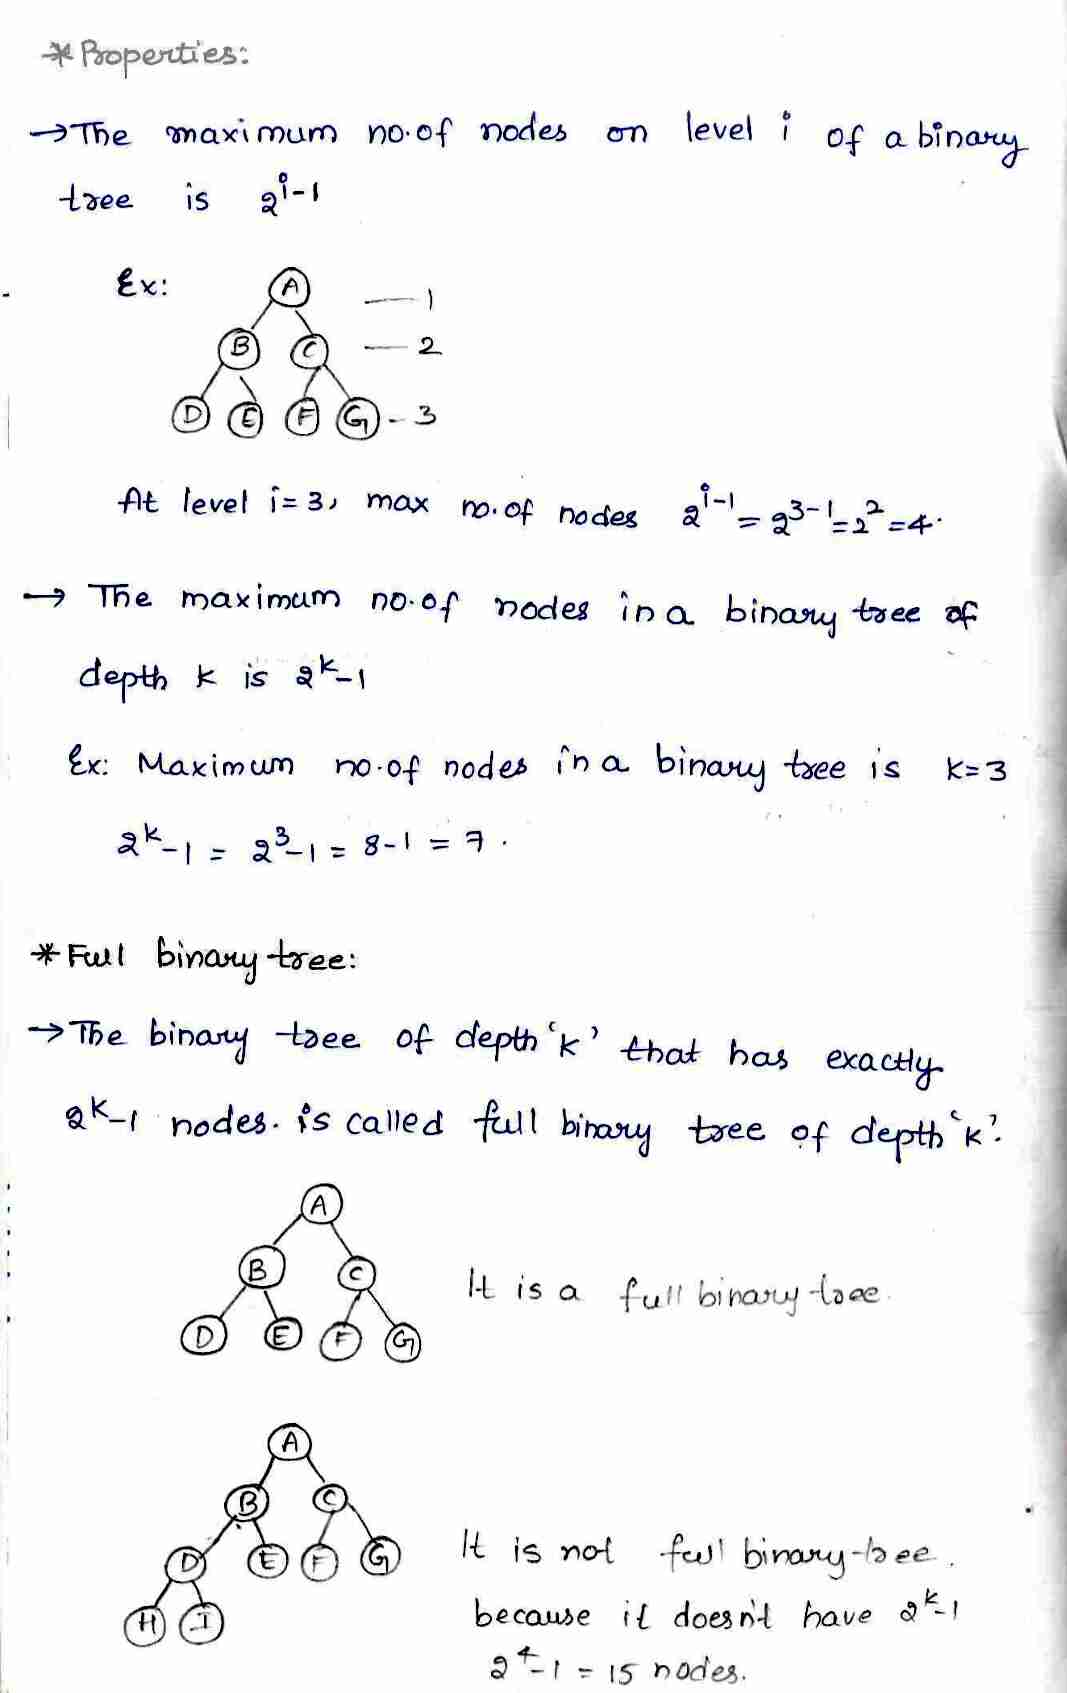 * Properties:
→ The maximum no.of nodes on level i of a binary
tree is 2^i-1
Ex:
A — 1
B C — 2
D E F G - 3
At level i=3, max no.of nodes 2^i-1 = 2^3-1 = 2^2 = 4.
→ The maximum no.of nodes in a binary tree of
depth k is 2^k-1
Ex: Maximum no.of nodes in a binary tree is k=3
2^k-1 = 2^3-1 = 8-1 = 7.
* Full binary tree:
→ The binary tree of depth 'k' that has exactly
2^k-1 nodes. is called full binary tree of depth 'k'.
A
B C
D E F G
It is a full binary tree.
A
B C
D E F G
H I
It is not full binary tree.
because it doesn't have 2^k-1
2^4-1 = 15 nodes.